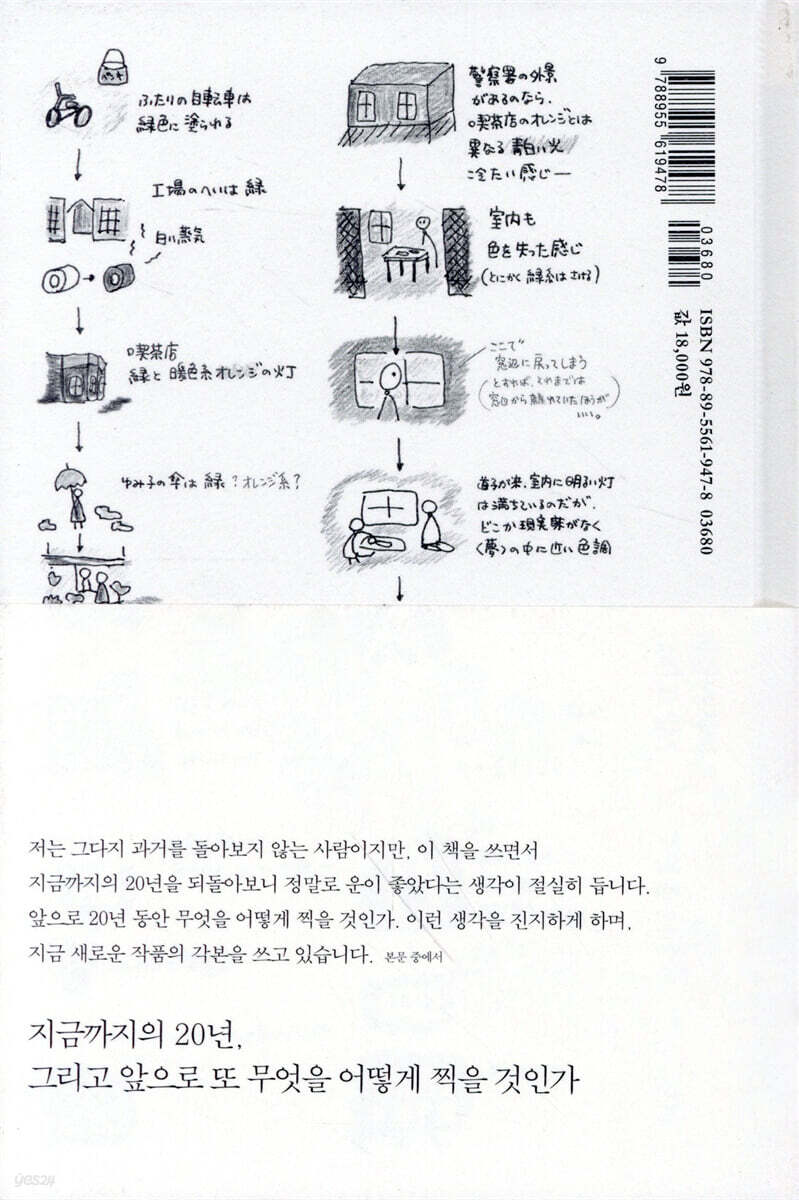 ふたりの自転車は
緑色に塗られる
工場のへいは緑
白い蒸気
喫茶店
緑と暖色系オレンジの灯
ゆみ子の傘は緑？オレンジ系？
警察署の外景
があるのなら、
喫茶店のオレンジとは
異なる青白い光
冷たい感じ―
室内も
色を失った感じ
(とにかく緑系はさける)
ここで
窓辺に戻ってしまう
とすれば、それまでは
窓辺から離れていたほうが
いい。
道子が来、室内に明るい灯
は満ちているのだが、
どこか現実味がなく
〈夢〉の中に近い色調
9 788955 619478
03680
ISBN 978-89-5561-947-8 03680
값 18,000원
저는 그다지 과거를 돌아보지 않는 사람이지만, 이 책을 쓰면서
지금까지의 20년을 되돌아보니 정말로 운이 좋았다는 생각이 절실히 듭니다.
앞으로 20년 동안 무엇을 어떻게 찍을 것인가. 이런 생각을 진지하게 하며,
지금 새로운 작품의 각본을 쓰고 있습니다. 본문 중에서
지금까지의 20년,
그리고 앞으로 또 무엇을 어떻게 찍을 것인가
yes24